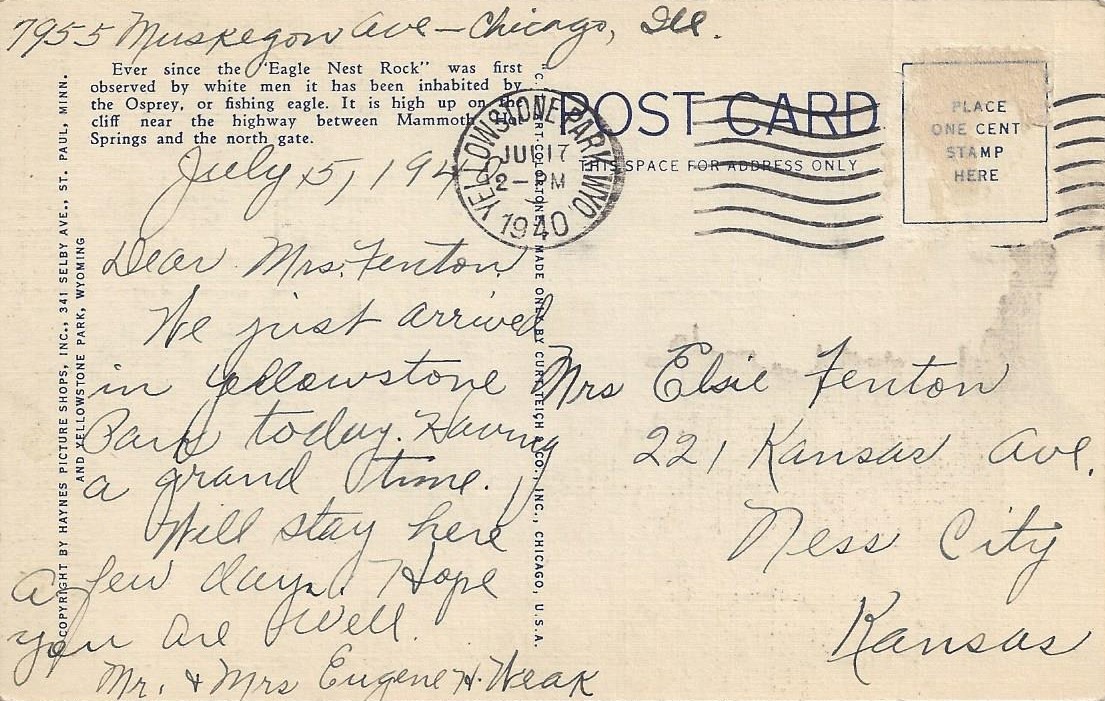 7955 Muskegon Ave - Chicago, Ill.
Ever since the "Eagle Nest Rock" was first
observed by white men it has been inhabited by
the Osprey, or fishing eagle. It is high up on the
cliff near the highway between Mammoth Hot
Springs and the north gate.
July 15, 194
Dear Mrs. Fenton
We just arrived
in Yellowstone
Park today. Having
a grand time.
Will stay here
a few days. Hope
you are well.
Mr. & Mrs Eugene H. Weak
COPYRIGHT BY HAYNES PICTURE SHOPS, INC., 341 SELBY AVE., ST. PAUL, MINN.
AND YELLOWSTONE PARK, WYOMING
"C. T. ART-COLORTONE" MADE ONLY BY CURT TEICH & CO., INC., CHICAGO, U.S.A.
POST CARD
THIS SPACE FOR ADDRESS ONLY
YELLOWSTONE PARK, WYO.
JUL 17
2-PM
1940
PLACE
ONE CENT
STAMP
HERE
Mrs Elsie Fenton
221 Kansas Ave.
Ness City
Kansas